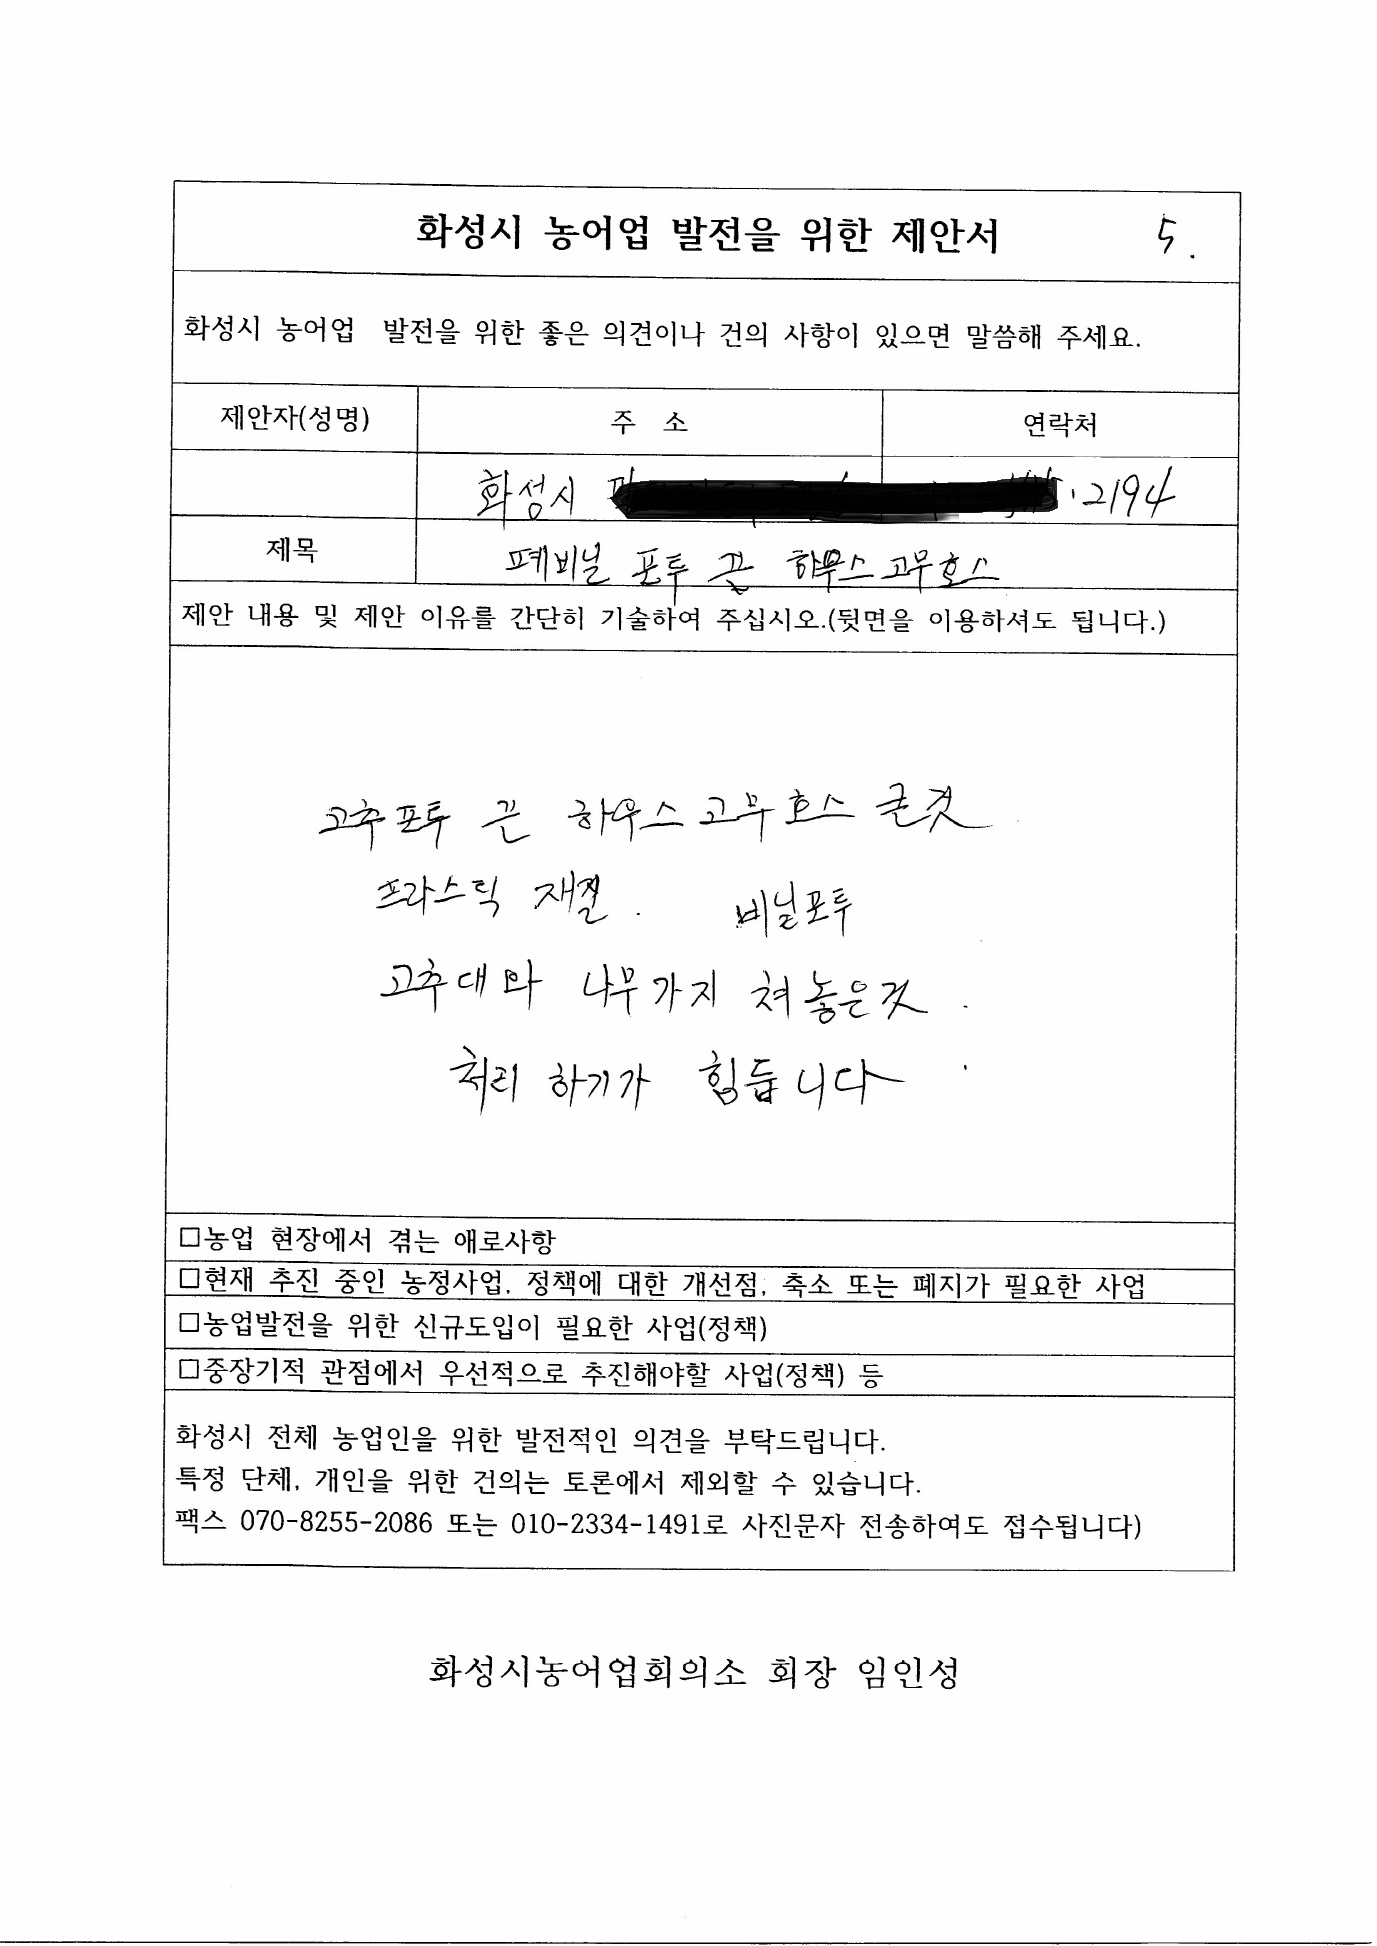 화성시 농어업 발전을 위한 제안서 5.
화성시 농어업 발전을 위한 좋은 의견이나 건의 사항이 있으면 말씀해 주세요.
제안자(성명) 주 소 연락처
화성시 2194
제목 폐비닐 포투 끈 하우스 고무호스
제안 내용 및 제안 이유를 간단히 기술하여 주십시오.(뒷면을 이용하셔도 됩니다.)
고추포투 끈 하우스 고무호스 굴것
프라스틱 재질. 비닐포투
고추대와 나무가지 쳐놓은것.
처리 하기가 힘듭니다.
□농업 현장에서 겪는 애로사항
□현재 추진 중인 농정사업, 정책에 대한 개선점, 축소 또는 폐지가 필요한 사업
□농업발전을 위한 신규도입이 필요한 사업(정책)
□중장기적 관점에서 우선적으로 추진해야할 사업(정책) 등
화성시 전체 농업인을 위한 발전적인 의견을 부탁드립니다.
특정 단체, 개인을 위한 건의는 토론에서 제외할 수 있습니다.
팩스 070-8255-2086 또는 010-2334-1491로 사진문자 전송하여도 접수됩니다)
화성시농어업회의소 회장 임인성